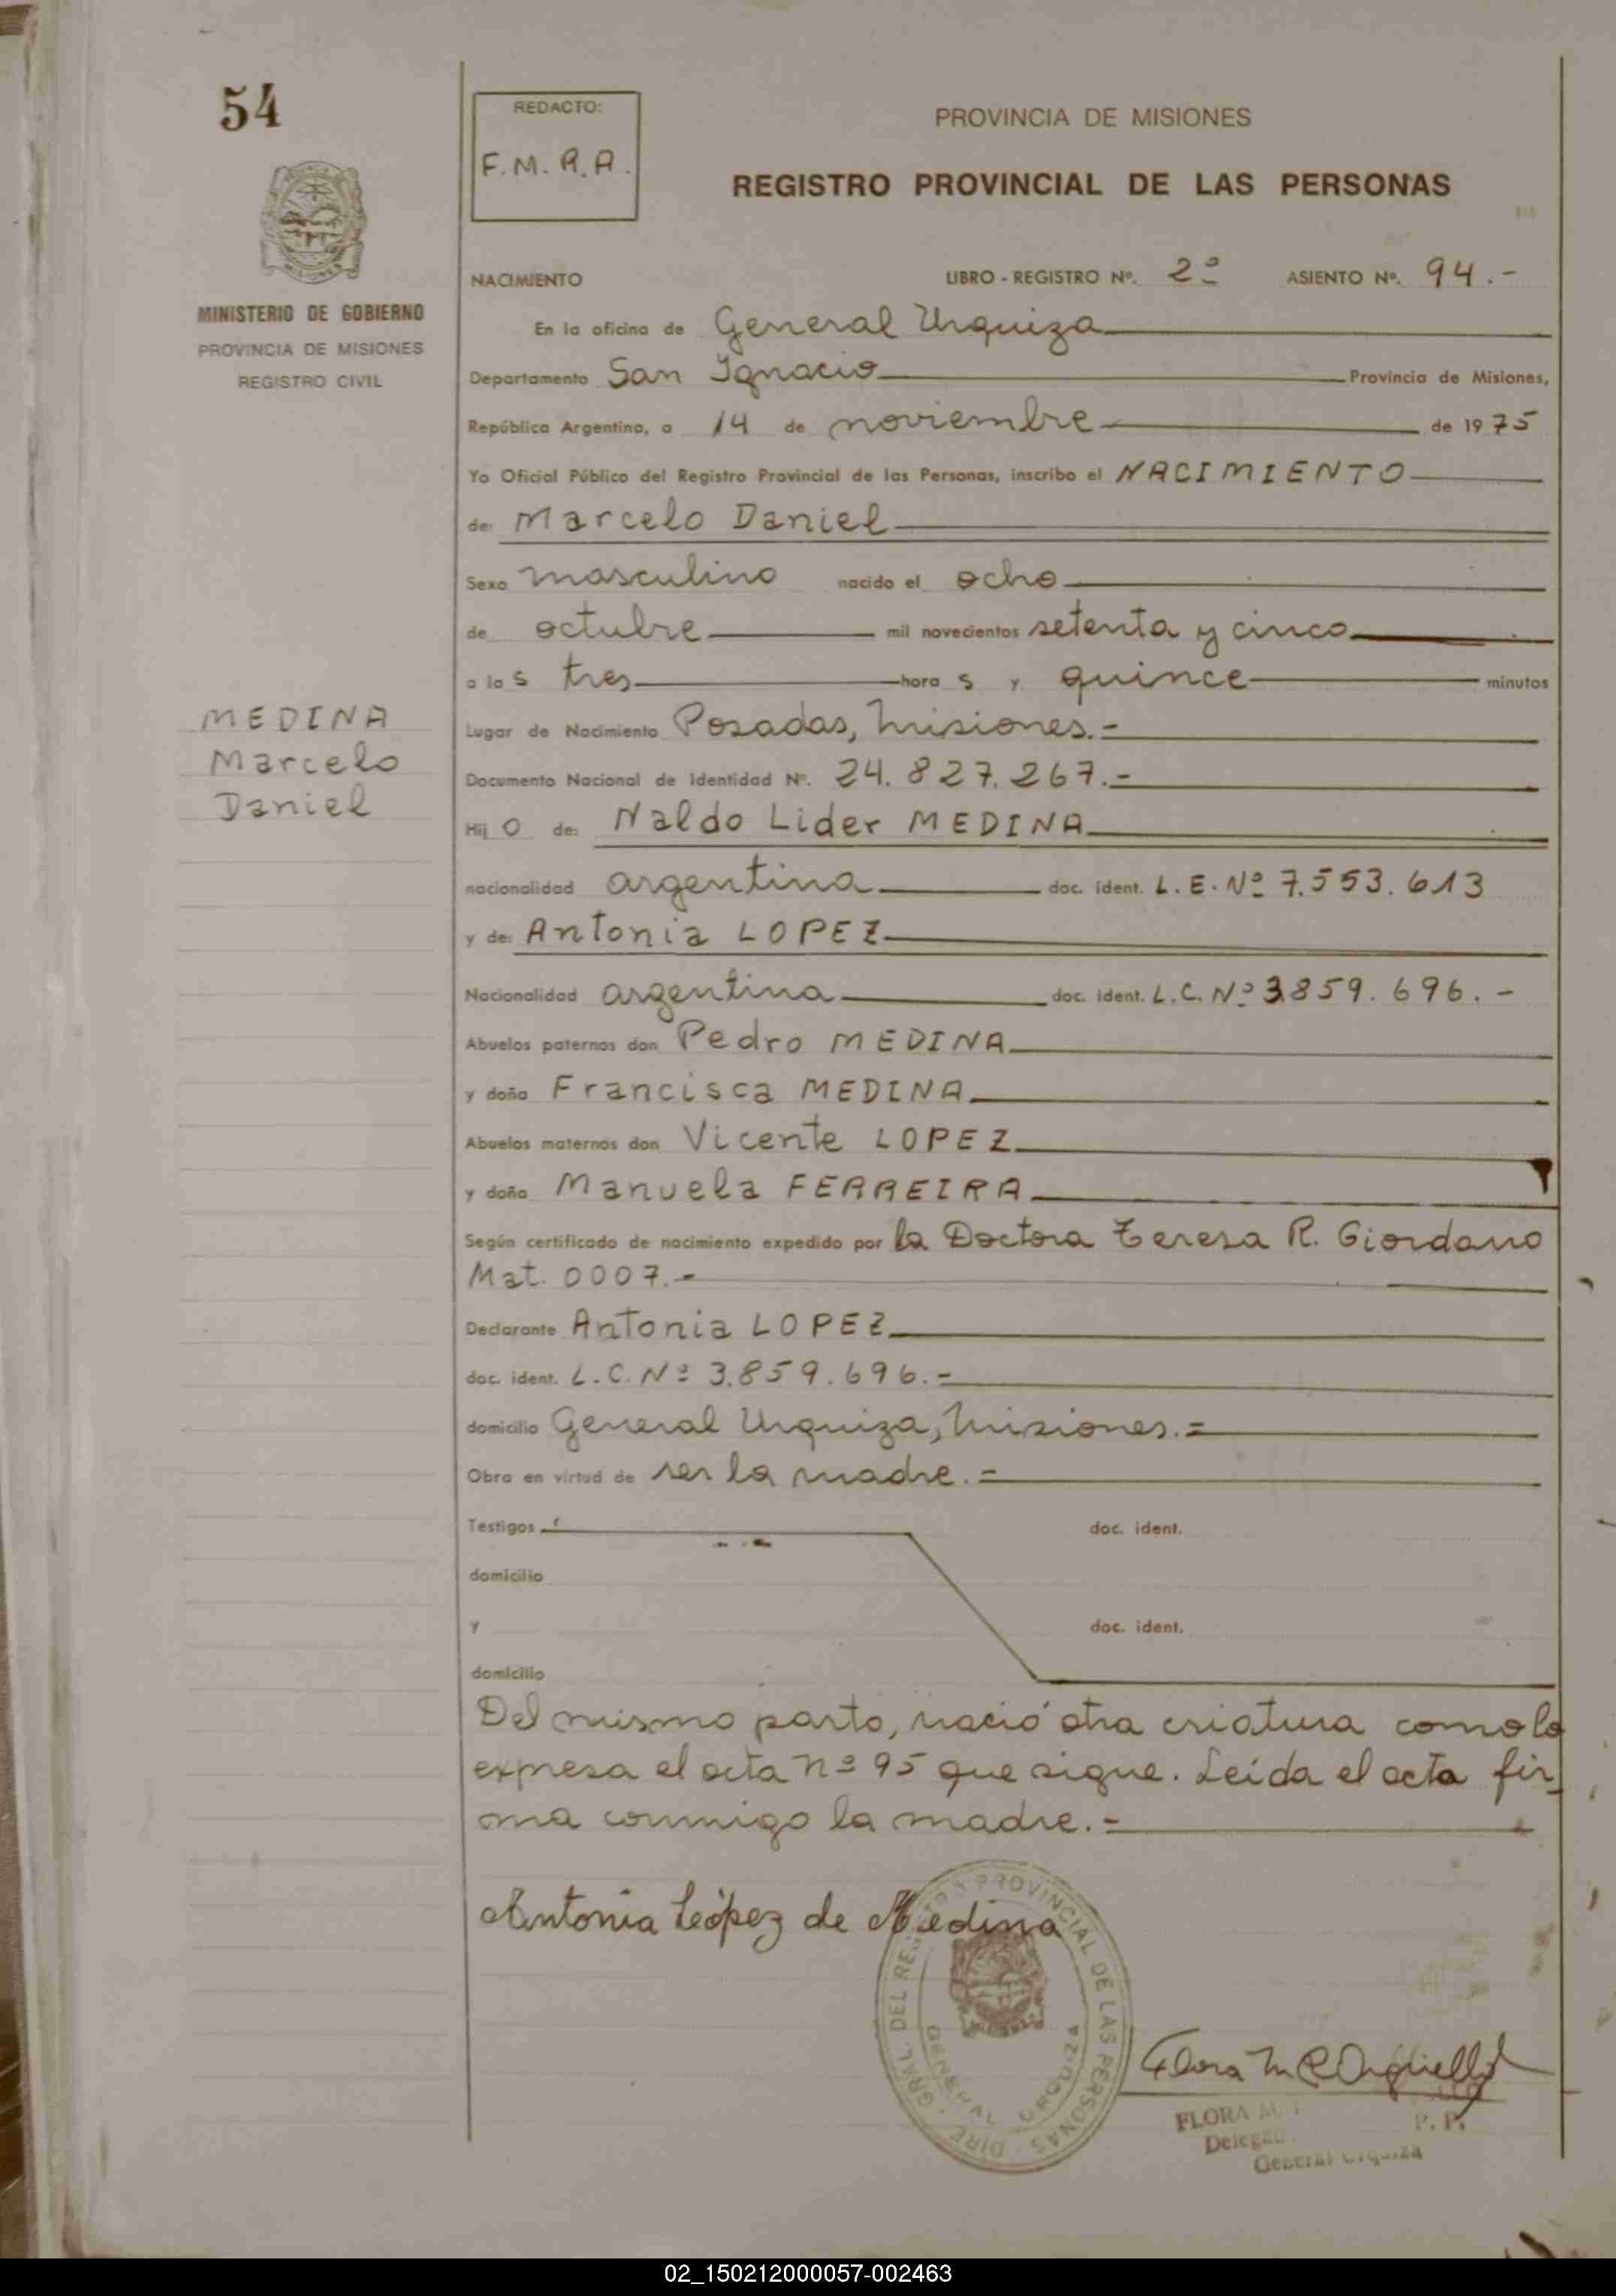 54
REDACTO:
F. M. R. A.
PROVINCIA DE MISIONES
REGISTRO PROVINCIAL DE LAS PERSONAS
MINISTERIO DE GOBIERNO
PROVINCIA DE MISIONES
REGISTRO CIVIL
MEDINA
Marcelo
Daniel
NACIMIENTO LIBRO - REGISTRO Nº. 2º ASIENTO Nº. 94.-
En la oficina de General Urquiza
Departamento San Ignacio Provincia de Misiones,
República Argentina, a 14 de noviembre de 1975
Yo Oficial Público del Registro Provincial de las Personas, inscribo el NACIMIENTO
de: Marcelo Daniel
Sexo masculino nacido el ocho
de octubre mil novecientos setenta y cinco
a las tres horas y quince minutos
Lugar de Nacimiento Posadas, Misiones.-
Documento Nacional de Identidad Nº. 24.827.267.-
Hijo de: Naldo Lider MEDINA
nacionalidad argentina doc. ident. L. E. Nº 7.553.613
y de: Antonia LOPEZ
Nacionalidad argentina doc. ident. L.C. Nº 3.859.696.-
Abuelos paternos don Pedro MEDINA
y doña Francisca MEDINA
Abuelos maternos don Vicente LOPEZ
y doña Manuela FERREIRA
Según certificado de nacimiento expedido por la Doctora Teresa R. Giordano
Mat. 0007.-
Declarante Antonia LOPEZ
doc. ident. L.C. Nº 3.859.696.-
domicilio General Urquiza, Misiones.=
Obra en virtud de ser la madre.=
Testigos doc. ident.
domicilio
y doc. ident.
domicilio
Del mismo parto, nació otra criatura como lo
expresa el acta nº 95 que sigue. Leída el acta fir
ma conmigo la madre.=
Antonia López de Medina
DIRE. GRAL. DEL REGISTRO PROVINCIAL DE LAS PERSONAS
GENERAL URQUIZA
Flora M R Argüello
FLORA M.
P. P.
General Urquiza
02_150212000057-002463